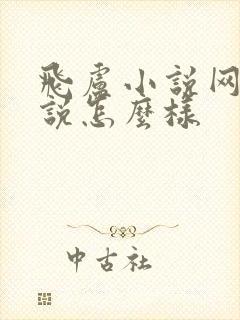 飛盧小說网
說怎麼樣
中古社